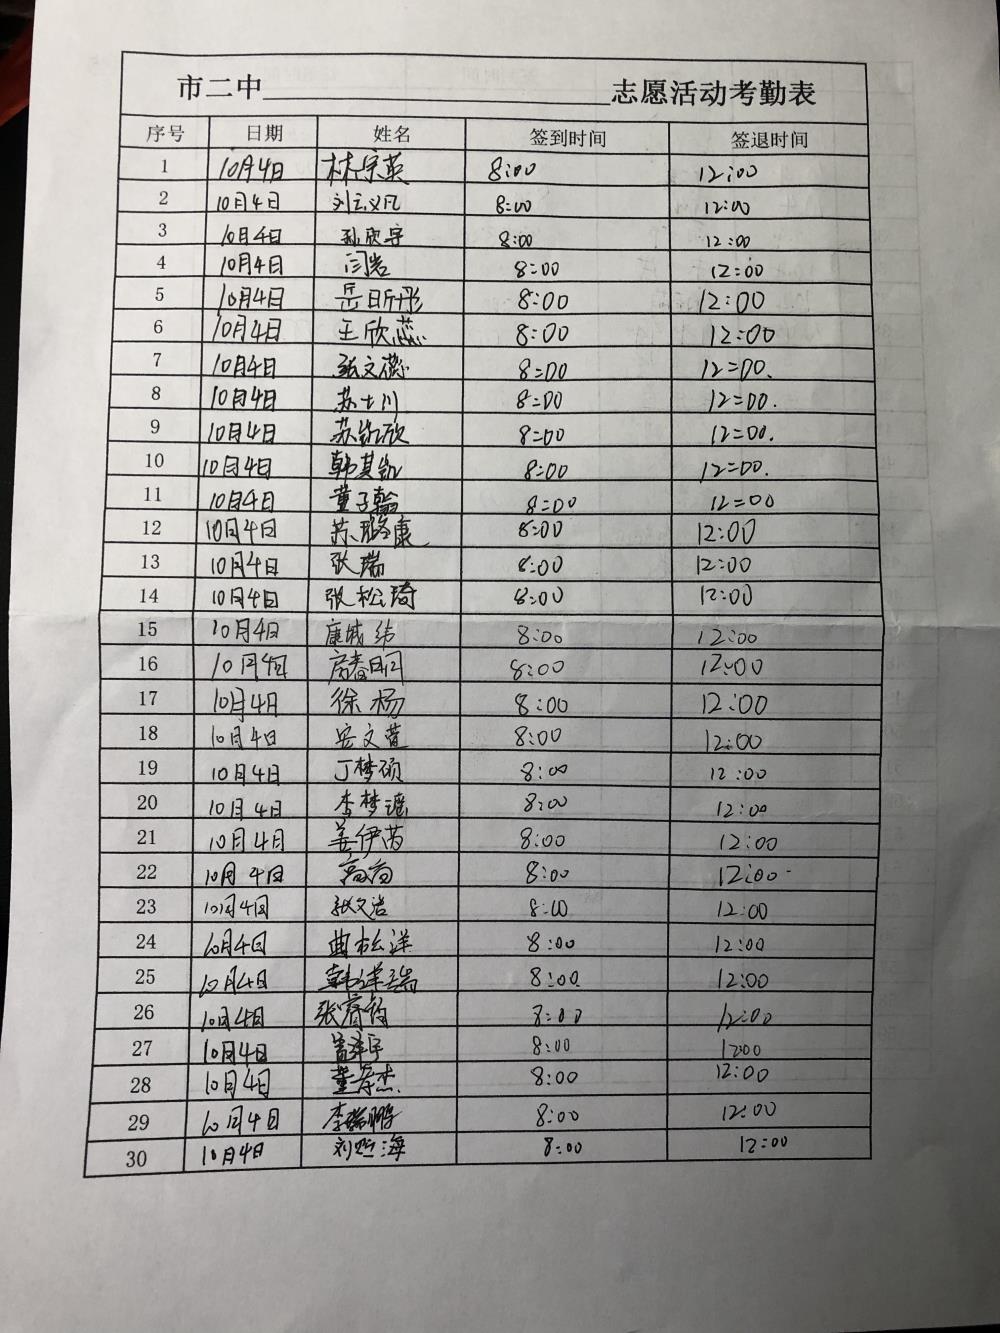 市二中____________________志愿活动考勤表
序号 日期 姓名 签到时间 签退时间
1 10月4日 林宗英 8:00 12:00
2 10月4日 刘云义凡 8:00 12:00
3 10月4日 孙欣宇 8:00 12:00
4 10月4日 闫岩 8:00 12:00
5 10月4日 岳昕彤 8:00 12:00
6 10月4日 王欣蕊 8:00 12:00
7 10月4日 张文蕊 8:00 12:00.
8 10月4日 苏士川 8:00 12:00.
9 10月4日 苏凯欣 8:00 12:00.
10 10月4日 韩其凯 8:00 12:00.
11 10月4日 董子翰 8:00 12:00
12 10月4日 苏璐康 8:00 12:00
13 10月4日 张瑞 8:00 12:00
14 10月4日 张松琦 8:00 12:00
15 10月4日 康城纬 8:00 12:00
16 10月4日 房春明 8:00 12:00
17 10月4日 徐杨 8:00 12:00
18 10月4日 安文萱 8:00 12:00
19 10月4日 丁梦硕 8:00 12:00
20 10月4日 李梦瑶 8:00 12:00
21 10月4日 姜伊芮 8:00 12:00
22 10月4日 8:00 12:00
23 10月4日 张文浩 8:00 12:00
24 10月4日 曲松洋 8:00 12:00
25 10月4日 韩祥瑞 8:00 12:00
26 10月4日 张睿钧 8:00 12:00
27 10月4日 8:00 12:00
28 10月4日 8:00 12:00
29 10月4日 李瑞鹏 8:00 12:00
30 10月4日 海 8:00 12:00